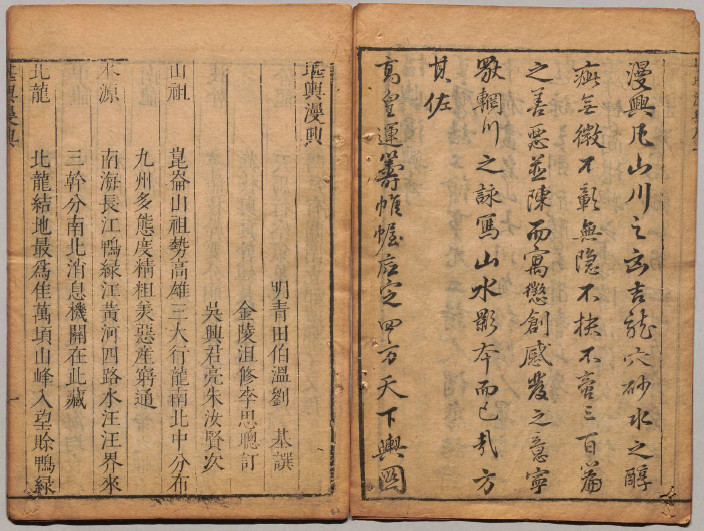 漫興凡山川之凶吉龍穴砂水之醇
疵無微不彰無隱不抉不啻三百篇
之善惡並陳而寓懲創感發之意寧
輞川之詠寫山水影本而已哉方
其佐
高皇運籌帷幄底定四方天下輿圖
堪輿漫興
明青田伯溫劉基譔
金陵沮修李思聰訂
吳興君亮朱汝賢次
山祖
崑崙山祖勢高雄三大行龍南北中分布
九州多態度精粗美惡產窮通
水源
南海長江鴨綠江黃河四路水汪汪界來
三幹分南北消息機關在此藏
北龍
北龍結地最爲佳萬項山峰入望賒鴨綠
一
堪輿漫興